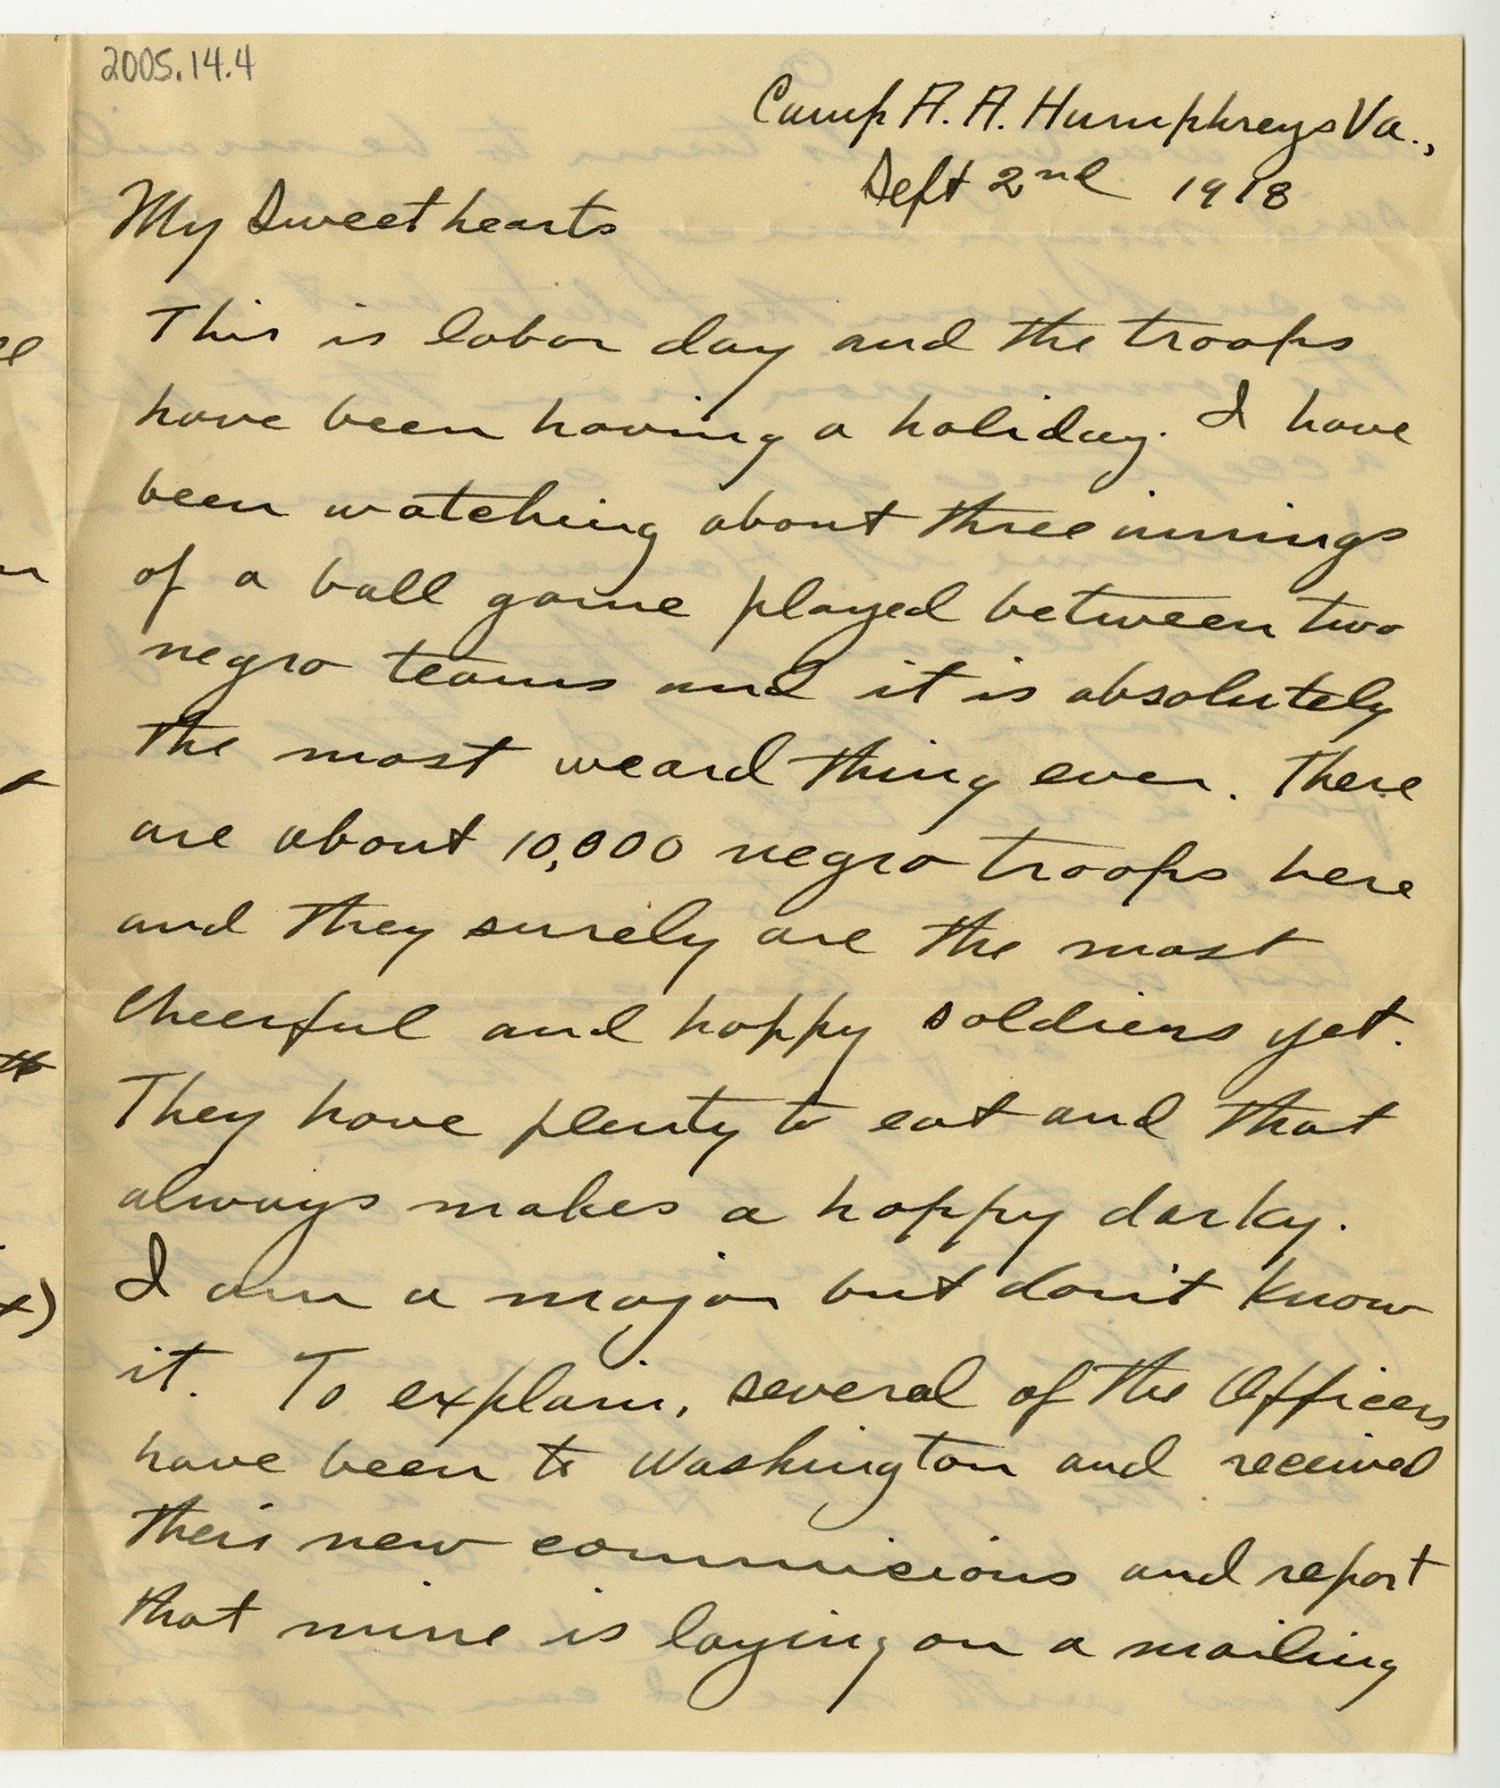 2005.14.4
Camp A. A. Humphreys Va.,
Sept 2nd 1918
My Sweethearts
This is labor day and the troops
have been having a holiday. I have
been watching about three innings
of a ball game played between two
negro teams and it is absolutely
the most weard thing ever. There
are about 10,000 negro troops here
and they surely are the most
cheerful and happy soldiers yet.
They have plenty to eat and that
always makes a happy darky.
I am a major but don't know
it. To explain, several of the Officers
have been to Washington and received
their new commicions and report
that mine is laying on a mailing